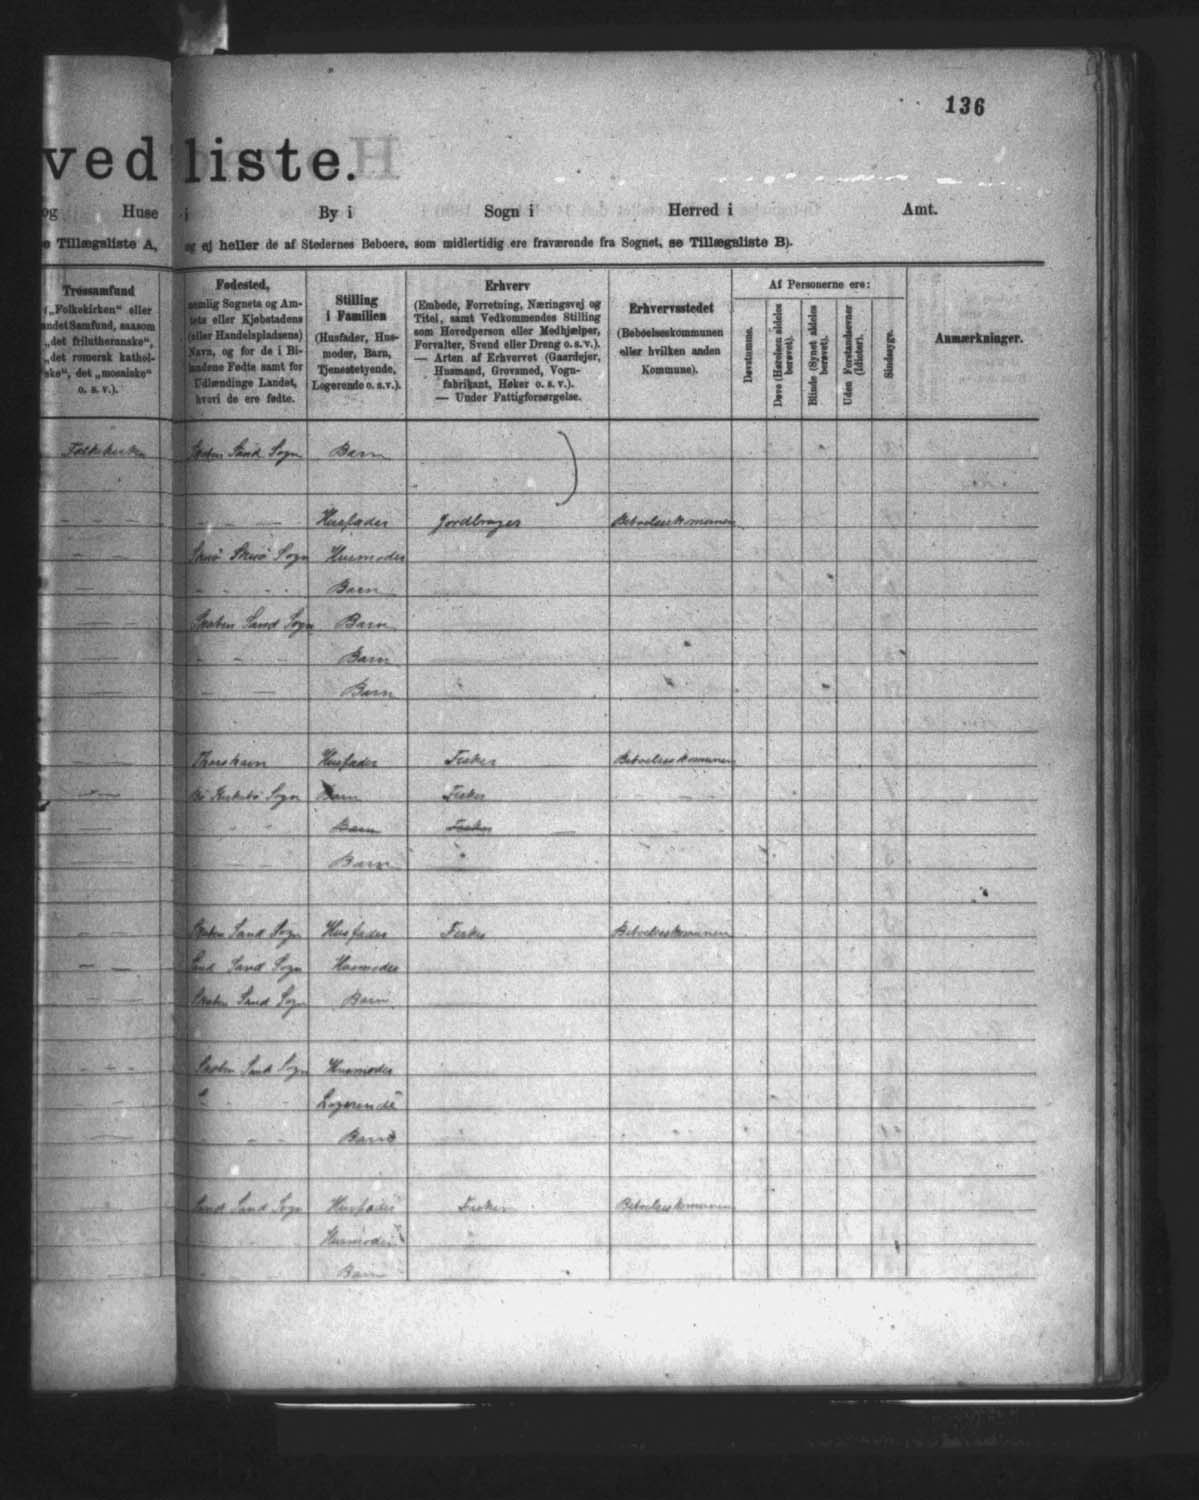 136
ved liste.
og Huse i By i Sogn i Herred i Amt.
Tillægsliste A, og ej heller de af Stedernes Beboere, som midlertidig ere fraværende fra Sognet, se Tillægsliste B).
Trossamfund
(„Folkekirken“ eller
andet Samfund, saasom
„det frilutheranske“,
„det romersk kathol-
ske“, det „mosaiske“
o. s. v.).
Fødested,
nemlig Sognets og Am-
tets eller Kjøbstadens
(eller Handelspladsens)
Navn, og for de i Bi-
landene Fødte samt for
Udlændinge Landet,
hvori de ere fødte.
Stilling
i Familien
(Husfader, Hus-
moder, Barn,
Tjenestetyende,
Logerende o. s. v.).
Erhverv
(Embede, Forretning, Næringsvej og
Titel, samt Vedkommendes Stilling
som Hovedperson eller Medhjælper,
Forvalter, Svend eller Dreng o. s. v.).
— Arten af Erhvervet (Gaardejer,
Husmand, Grovsmed, Vogn-
fabrikant, Høker o. s. v.).
— Under Fattigforsørgelse.
Erhvervsstedet
(Beboelseskommunen
eller hvilken anden
Kommune).
Af Personerne ere:
Døvstumme.
Døve (Hørelsen aldeles
berøvet).
Blinde (Synet aldeles
berøvet).
Uden Forstandsevner
(Idioter).
Sindssyge.
Anmærkninger.
Folkekirken Sand Sogn Barn
— — — Husfader Jordbruger Beboelseskommunen
Sogn Husmoder
Barn
Sand Sogn Barn
Barn
Barn
Thorshavn Husfader Fisker Beboelseskommunen
Sogn Barn Fisker
Barn Fisker
Barn
Sand Sogn Husfader Fisker Beboelseskommunen
Sand Sand Sogn Husmoder
Sand Sogn Barn
Sand Sogn Husmoder
Logerende
Barn
Sand Sand Sogn Husfader Fisker Beboelseskommunen
Husmoder
Barn